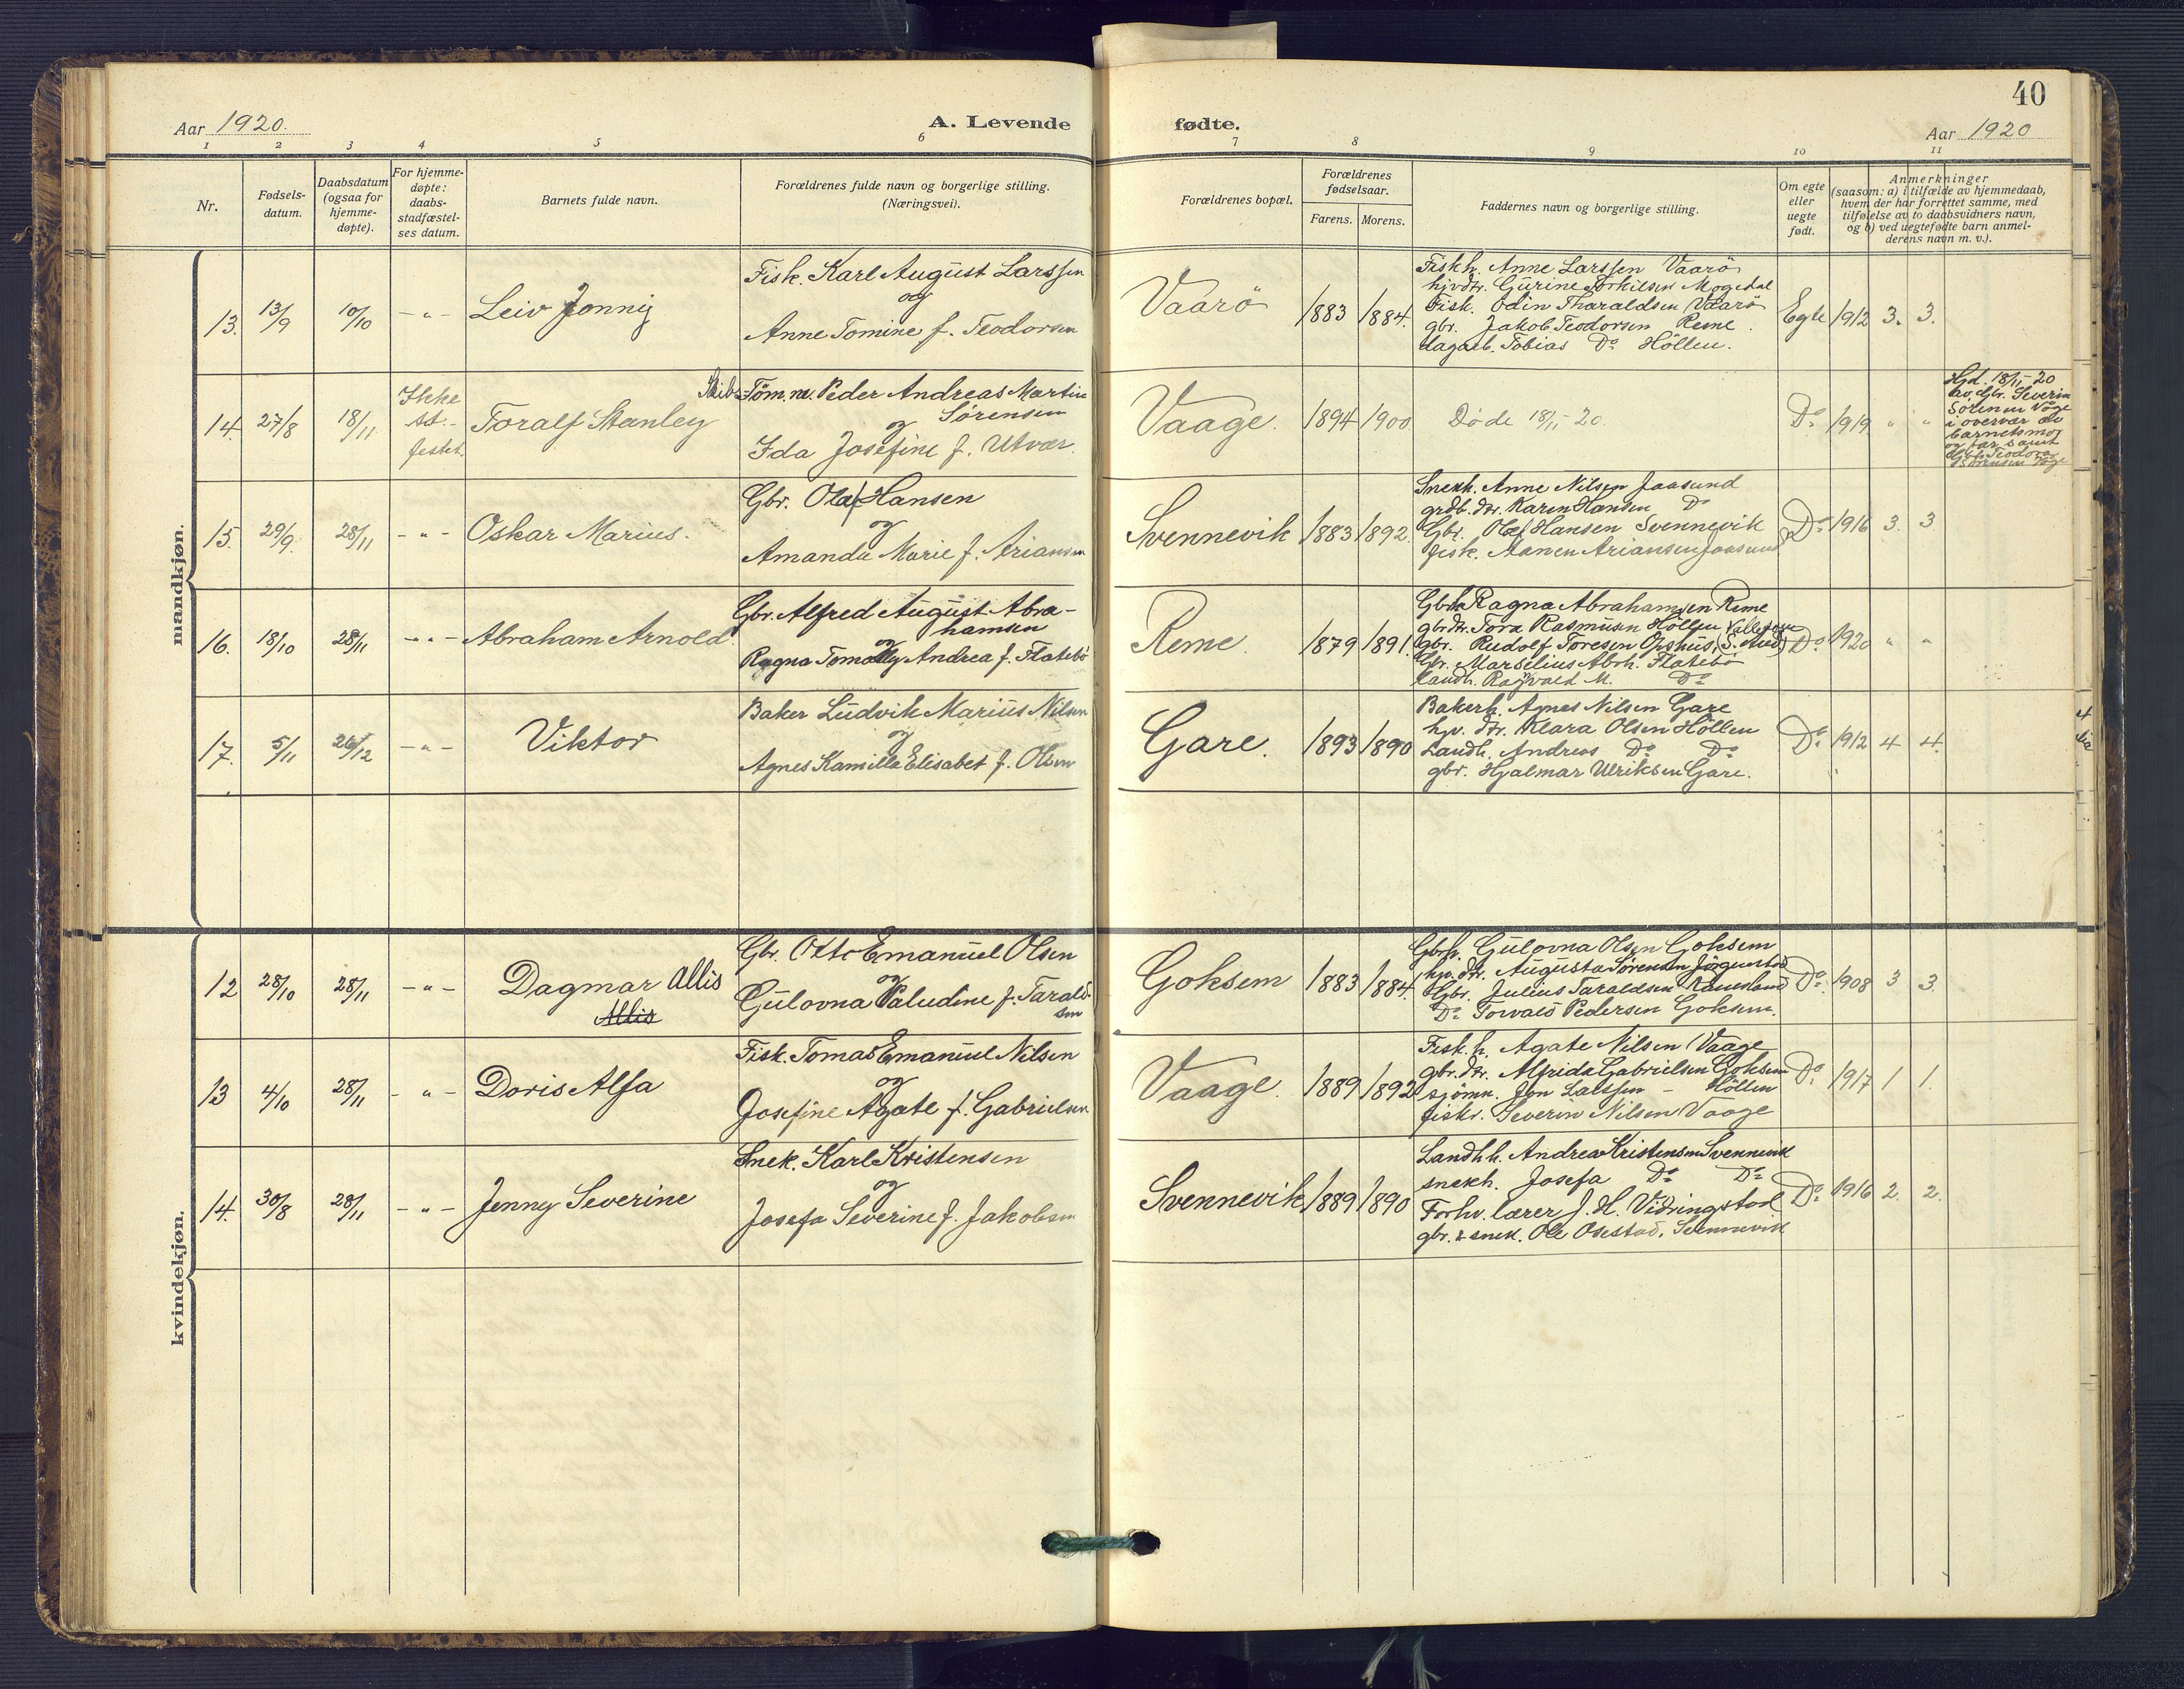 40
Aar 1920.
A. Levende
fødte.
Aar 1920
1 2 3 4 5 6 7 8 9 10 11
Nr.
Fødsels-
datum.
Daabsdatum
(ogsaa for
hjemme-
døpte).
For hjemme-
døpte:
daabs-
stadfæstel-
ses datum.
Barnets fulde navn.
Forældrenes fulde navn og borgerlige stilling.
(Næringsvei).
Forældrenes bopæl.
Forældrenes
fødselsaar.
Farens. Morens.
Faddernes navn og borgerlige stilling.
Om egte
eller
uegte
født.
Anmerkninger
(saasom: a) i tilfælde av hjemmedaab,
hvem der har forrettet samme, med
tilføielse av to daabsvidners navn,
og b) ved uegtefødte barn anmel-
derens navn m. v.).
mandkjøn.
13. 13/9 10/10 - " - Leiv Jonny
Fisk. Karl August Larssen
og
Anne Tomine f. Teodorsen
Vaarö 1883 1884.
Fiskh. Anne Larssen Vaarö
hjvdtr. Gurine Torkilsen Mogedal
Fisk. Odin Tharaldsen Vaarö
gbr. Jakob Teodorsen Reme.
dagarb. Tobias Do Höllen.
Egte 1912 3. 3.
14. 27/8 18/11
Ikke
st.-
festet.
Toralf Stanley
Skibs-Töm.m. Peder Andreas Martin
Sörensen
og
Ida Josefine f. Utvær.
Vaage. 1894 1900 Døde 18/11-20. Do 1919 " "
Hjd. 18/11-20
av Gbr. Severin
Sörensen Våge
i overvær av
barnets mor
og far samt
Gbr. Teodor
Sörensen Våge
15. 29/9. 28/11 - " - Oskar Marius.
Gbr. Olaf Hansen
og
Amanda Marie f. Ariansen
Svennevik 1883 1892.
Snekh. Anne Nilsen Jaasund
grdb.dtr. Karen Hansen Do
Gbr. Olaf Hansen Svennevik
fisk. Aanen Ariansen Jaasund
Do 1916 3. 3
16. 18/10 28/11 - " - Abraham Arnold.
Gbr. Alfred August Abra-
hamsen
og
Ragna Tomally Andrea f. Flatebö
Reme. 1879 1891.
Gbrh Ragna Abrahamsen Reme
gbrdtr. Tora Rasmusen Höllen
gbr. Rudolf Toresen Opshus, (S. Aud)
Gbr. Marselius Abrh. Flatebö
landh. Ragvald M. Do
Do 1920 " "
17. 5/11 26/12 - " - Viktor
Baker Ludvik Marius Nilsen
og
Agnes Kamilla Elisabet f. Olsen
Gare. 1893 1890
Bakerh. Agnes Nilsen Gare
hjv. dtr. Klara Olsen Höllen
Landh. Andreas Do Do
gbr. Hjalmar Ulriksen Gare.
Do 1912 4 4.
kvindekjøn.
12 28/10 28/11 - " - Dagmar Allis
Allis
Gbr. Otto Emanuel Olsen
og
Gulovna Paludine f. Tarald-
sen
Goksem 1883 1884.
Gbrh. Gulovna Olsen Goksem
hjv.dtr. Augusta Sörensen Jörgenstad
Gbr. Julius Taraldsen Rauesland
Do Torvald Pedersen Goksem.
Do 1908 3 3.
13 4/10 28/11 - " - Doris Alfa
Fisk. Tomas Emanuel Nilsen
og
Josefine Agate f. Gabrielsen
Vaage. 1889 1892
Fisk. h. Agate Nilsen Vaage
gbr. dtr. Alfrida Gabrielsen Goksem
sjömn. Jon Larssen - Höllen
fiskr. Severin Nilsen Vaage
Do 1917 1 1.
14. 30/8 28/11 - " - Jenny Severine
Snek. Karl Kristensen
og
Josefa Severine f. Jakobsen
Svennevik 1889 1890
Landhh. Andrea Kristensen Svennevik
snekh. Josefa Do Do
Forhv. lærer J. H. Vidringstad
gbr. & snek. Ole Osestad, Svennevik
Do 1916 2. 2.